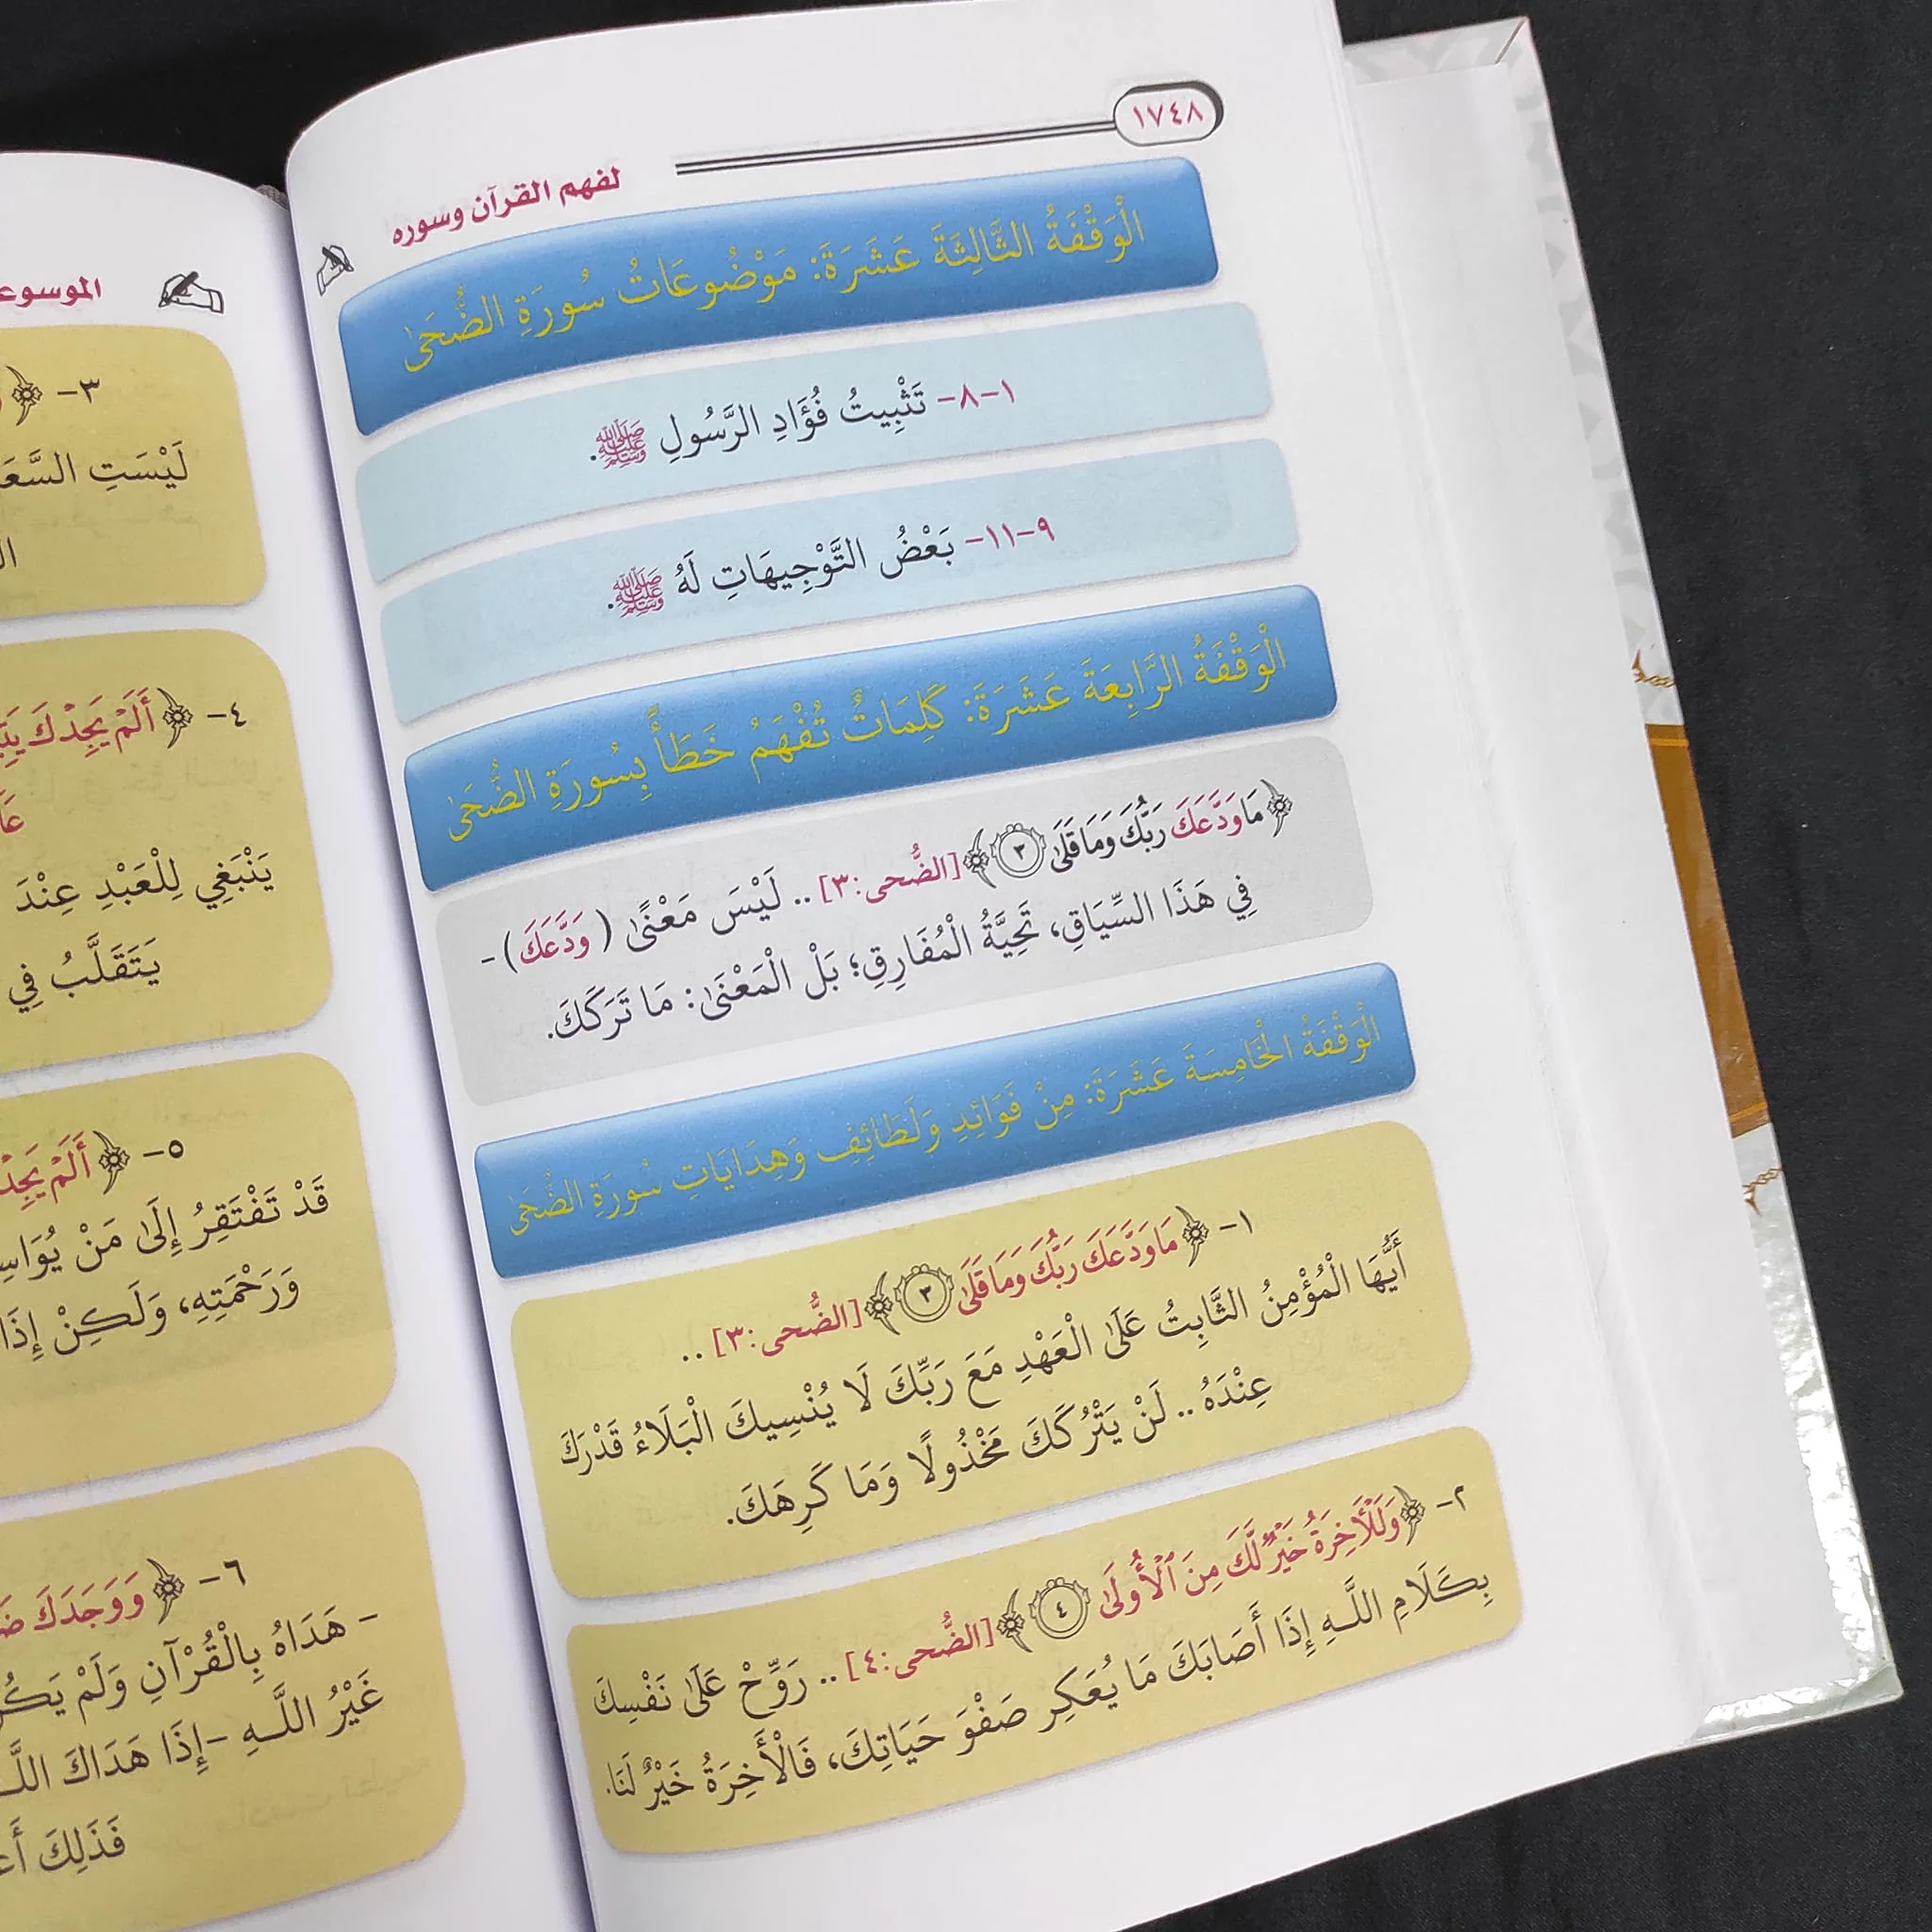 ١٧٤٨
لفهم القرآن وسوره
الْوَقْفَةُ الثَّالِثَةَ عَشَرَةَ: مَوْضُوعَاتُ سُورَةِ الضُّحَىٰ
١-٨- تَثْبِيتُ فُؤَادِ الرَّسُولِ ﷺ.
٩-١١- بَعْضُ التَّوْجِيهَاتِ لَهُ ﷺ.
الْوَقْفَةُ الرَّابِعَةَ عَشَرَةَ: كَلِمَاتٌ تُفْهَمُ خَطَأً بِسُورَةِ الضُّحَىٰ
﴿مَا وَدَّعَكَ رَبُّكَ وَمَا قَلَىٰ ٣﴾ [الضُّحى:٣] .. لَيْسَ مَعْنَىٰ (وَدَّعَكَ) -
فِي هَذَا السِّيَاقِ، تَحِيَّةُ الْمُفَارِقِ؛ بَلْ الْمَعْنَىٰ: مَا تَرَكَكَ.
الْوَقْفَةُ الْخَامِسَةَ عَشَرَةَ: مِنْ فَوَائِدِ وَلَطَائِفِ وَهِدَايَاتِ سُورَةِ الضُّحَىٰ
١- ﴿مَا وَدَّعَكَ رَبُّكَ وَمَا قَلَىٰ ٣﴾ [الضُّحى:٣] ..
أَيُّهَا الْمُؤْمِنُ الثَّابِتُ عَلَىٰ الْعَهْدِ مَعَ رَبِّكَ لَا يُنْسِيكَ الْبَلَاءُ قَدْرَكَ
عِنْدَهُ .. لَنْ يَتْرُكَكَ مَخْذُولًا وَمَا كَرِهَكَ.
٢- ﴿وَلَلْآخِرَةُ خَيْرٌ لَّكَ مِنَ ٱلْأُولَىٰ ٤﴾ [الضُّحى:٤] .. رَوِّحْ عَلَىٰ نَفْسِكَ
بِكَلَامِ اللَّـهِ إِذَا أَصَابَكَ مَا يُعَكِر صَفْوَ حَيَاتِكَ، فَالْأَخِرَةُ خَيْرٌ لَنَا.
٣- ﴿
لَيْسَتِ
٤- ﴿أَلَمْ يَجِدْكَ
يَنْبَغِي لِلْعَبْدِ عِنْدَ
يَتَقَلَّبُ فِي
٥- ﴿أَلَمْ
قَدْ تَفْتَقِرُ إِلَىٰ مَنْ
وَرَحْمَتِهِ، وَلَكِنْ إِذَا
٦- ﴿وَوَجَدَكَ
- هَدَاهُ بِالْقُرْآنِ وَلَمْ
غَيْرُ اللَّـهِ -إِذَا هَدَاكَ
فَذَلِكَ